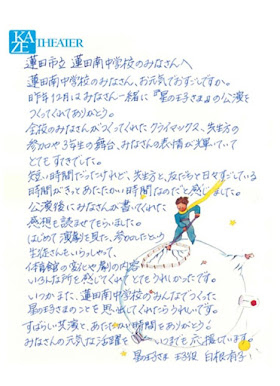 KAZE THEATER
蓮田市立 蓮田南中学校のみなさんへ
蓮田南中学校のみなさん、お元気ですごしてますか。
昨年12月はみなさんと一緒に『星の王子さま』の公演を
つくってくれてありがとう。
全校のみなさんがつくってくれたクライマックス、先生方の
参加や3年生の舞台、みなさんの表情が輝いていて
とてもすてきでした。
短い時間だったけれど、先生方と、友だちと日々すごしている
時間がきっとあたたかい時間なのだと感じました。
公演後にみなさんが書いてくれた
感想を読ませてもらいました。
はじめて演劇を見た、参加したという
生徒さんもいらっしゃって、
体育館の変化や劇の内容
いろんな所を感じてくれてとてもうれしかったです。
いつかまた、蓮田南中学校のみんなでつくった
星の王子さまのことを思い出してくれたらうれしいです。
すばらしい共演と、あたたかい時間をありがとう!
みなさんの元気なご活躍を いつまでも応援しています。
星の王子さま 王子役 白根有子